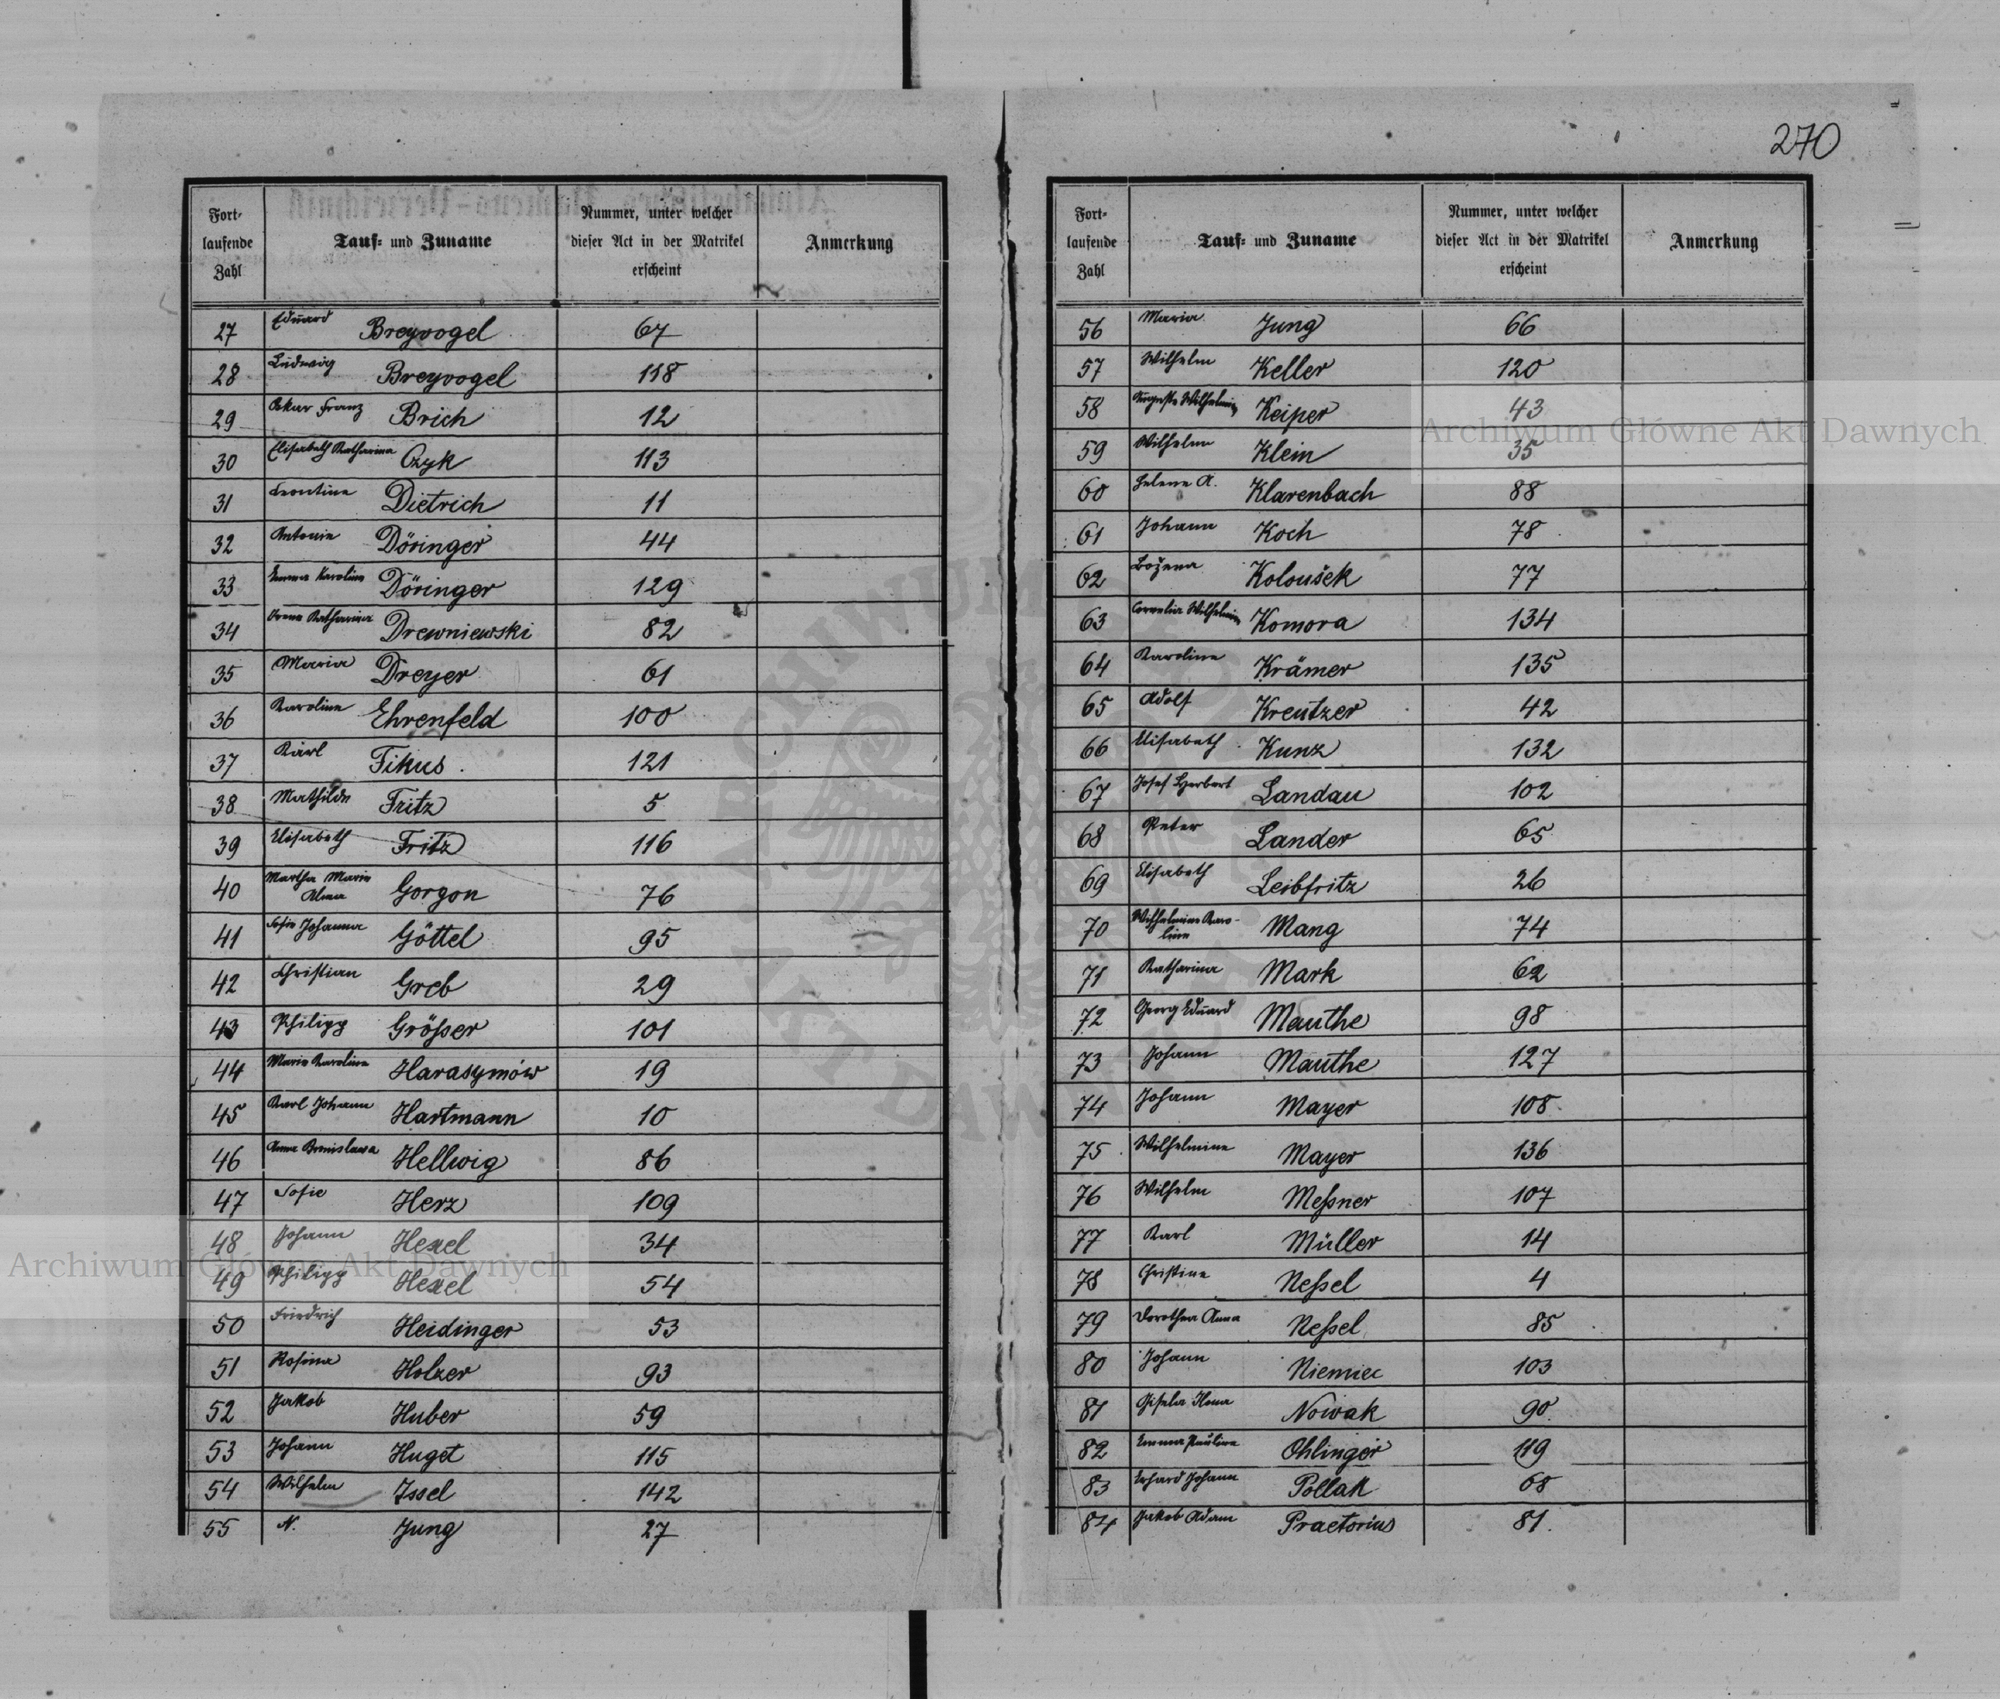 270
Fort-laufende Zahl | Tauf- und Zuname | Nummer, unter welcher dieser Act in der Matrikel erscheint | Anmerkung
27 Eduard Breyvogel 67
28 Ludwig Breyvogel 118
29 Oskar Franz Brich 12
30 Elisabeth Katharina Czyk 113
31 Leontine Dietrich 11
32 Antonie Döringer 44
33 Emma Karoline Döringer 129
34 Irene Katharina Drewniewski 82
35 Maria Dreyer 61
36 Karoline Ehrenfeld 100
37 Karl Fikus 121
38 Mathilde Fritz 5
39 Elisabeth Fritz 116
40 Martha Marie Alma Gorgon 76
41 Sofie Johanna Göttel 95
42 Christian Greb 29
43 Philipp Größer 101
44 Marie Karoline Harasymów 19
45 Karl Johann Hartmann 10
46 Anna Bronislawa Hellwig 86
47 Sofie Herz 109
48 Johann Hexel 34
49 Philipp Hexel 54
50 Friedrich Heidinger 53
51 Rosina Holzer 93
52 Jakob Huber 59
53 Johann Huget 115
54 Wilhelm Issel 142
55 N. Jung 27
Fort-laufende Zahl | Tauf- und Zuname | Nummer, unter welcher dieser Act in der Matrikel erscheint | Anmerkung
56 Maria Jung 66
57 Wilhelm Keller 120
58 Auguste Wilhelmine Keiper 43
59 Wilhelm Klein 35
60 Helene A. Klarenbach 88
61 Johann Koch 78
62 Božena Koloušek 77
63 Cornelia Wilhelmine Komora 134
64 Karoline Krämer 135
65 Adolf Kreutzer 42
66 Elisabeth Kunz 132
67 Josef Herbert Landau 102
68 Peter Lander 65
69 Elisabeth Leibfritz 26
70 Wilhelmine Karo-line Mang 74
71 Katharina Mark 62
72 Georg Eduard Mauthe 98
73 Johann Mauthe 127
74 Johann Mayer 108
75 Wilhelmine Mayer 136
76 Wilhelm Meßner 107
77 Karl Müller 14
78 Christine Neßel 4
79 Dorothea Anna Neßel 85
80 Johann Niemiec 103
81 Gisela Ilona Nowak 90
82 Emma Pauline Ohlinger 119
83 Erhard Johann Pollak 68
84 Jakob Adam Praetorius 81
Archiwum Główne Akt Dawnych
Archiwum Główne Akt Dawnych
ARCHIWUM GŁÓWNE AKT DAWNYCH